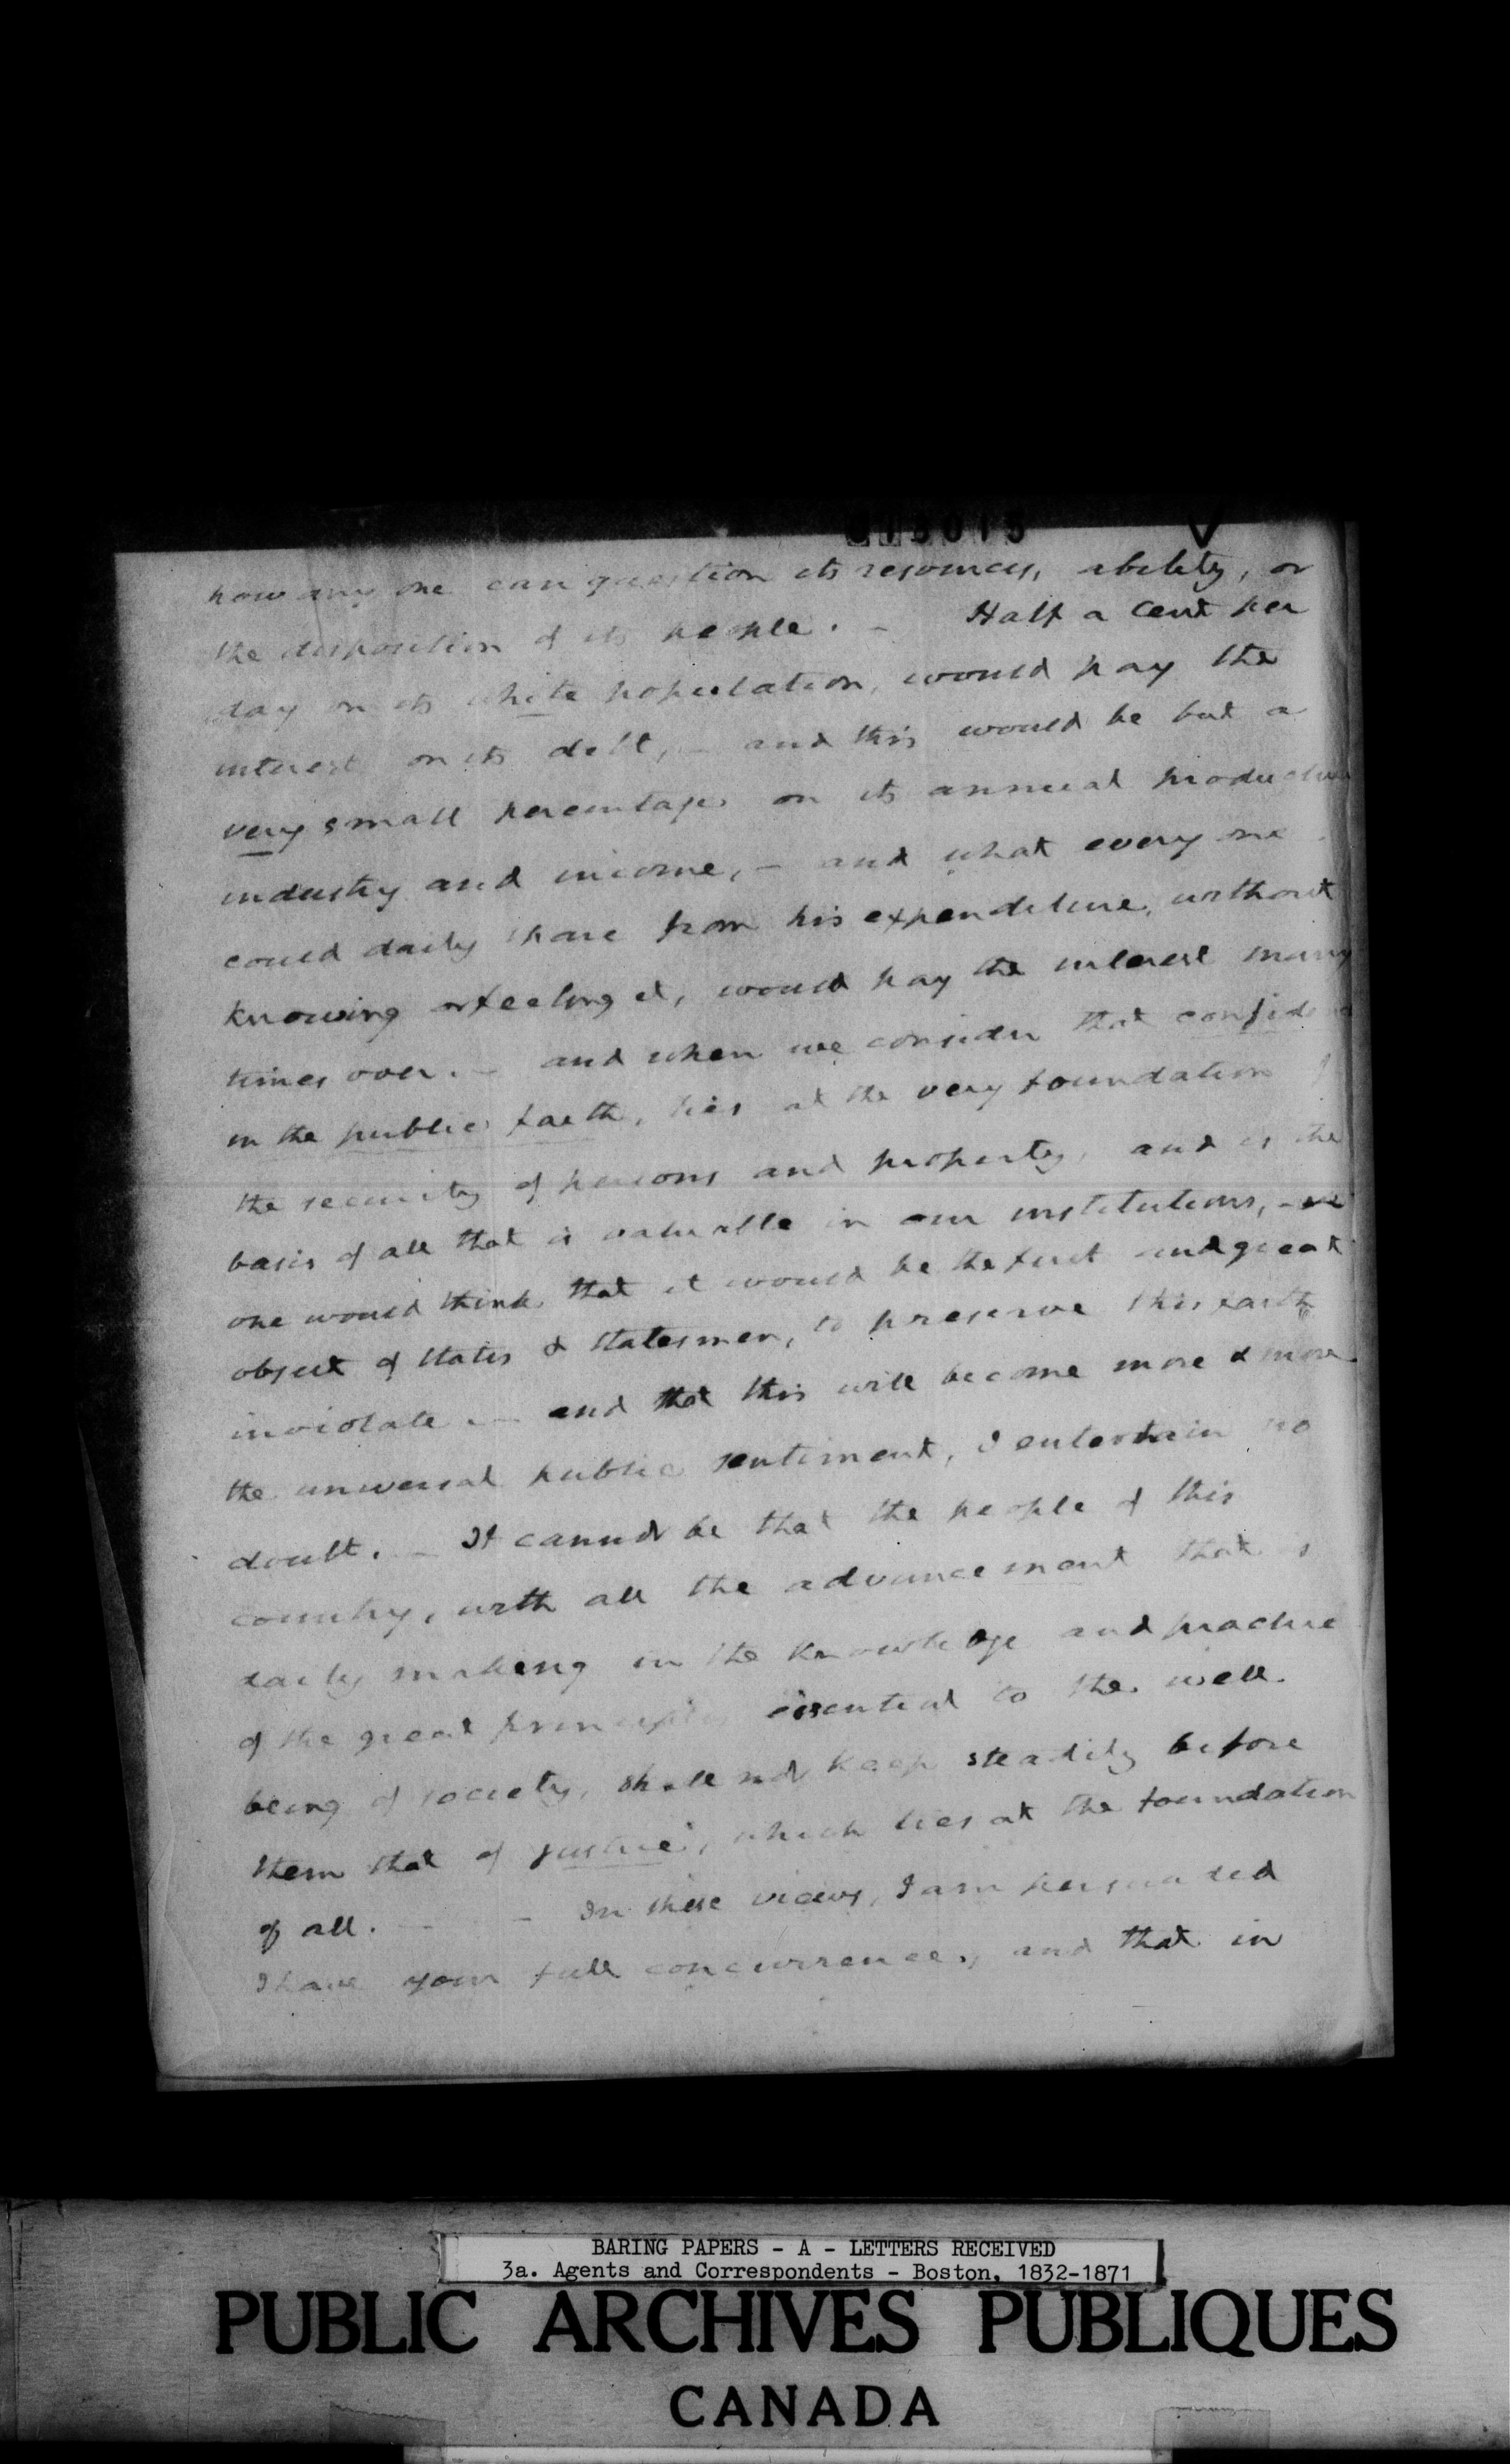 013015
how any one can question its resources, ability, or
the disposition of its people. - Half a Cent per
day on its white population, would pay the
interest on its debt, - and this would be but a
very small percentage on its annual productive
industry and income, - and what every one
could daily spare from his expenditure, without
knowing or feeling it, would pay the interest many
times over. - and when we consider that confidence
in the public faith, lies at the very foundation of
the security of persons and property, and is the
basis of all that is valuable in our institutions, -
one would think that it would be the first and great
object of States & Statesmen, to preserve this faith
inviolate. - and that this will become more & more
the universal public sentiment, I entertain no
doubt. - It cannot be that the people of this
country, with all the advancement that is
daily making in the knowledge and practice
of the great principles essential to the well
being of society, shall not keep steadily before
them that of justice, which lies at the foundation
of all. - - In these views, I am persuaded
I have your full concurrence, and that in
BARING PAPERS - A - LETTERS RECEIVED
3a. Agents and Correspondents - Boston, 1832-1871
PUBLIC ARCHIVES PUBLIQUES
CANADA